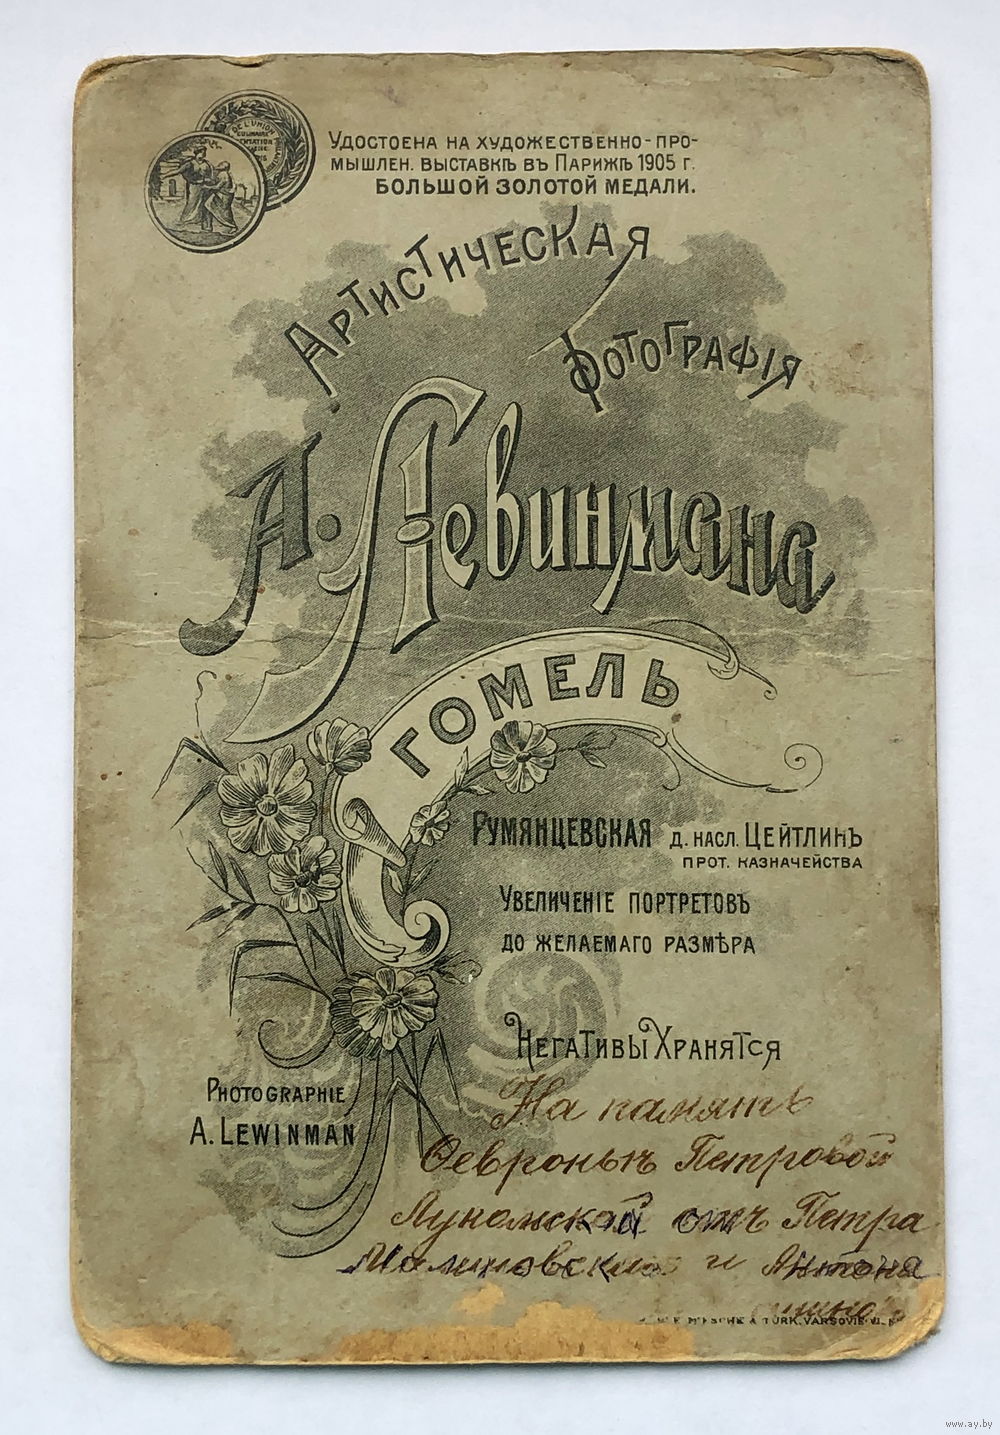 DE L'UNION
Удостоена на художественно-про-
мышлен. выставкѣ въ Парижѣ 1905 г.
большой золотой медали.
Артистическая
Фотографія
А. Левинмана
Гомель
Румянцевская д. насл. Цейтлинъ
прот. казначейства
Увеличеніе портретовъ
до желаемаго размѣра
Негативы Хранятся
Photographie
A. Lewinman
На память
Ѳевроньи Петровой
Лукомской отъ Петра
Малиновскаго и Антона
& TÜRK, VARSOVIE
www.ay.by